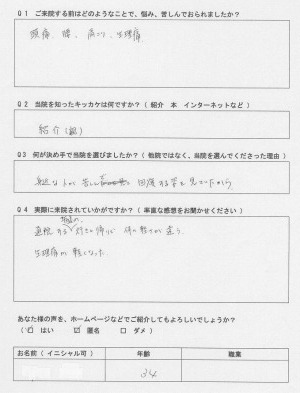 Q1 ご来院する前はどのようなことで、悩み、苦しんでおられましたか?
頭痛、腰、肩こり、生理痛
Q2 当院を知ったキッカケは何ですか?(紹介 本 インターネットなど)
紹介(親)
Q3 何が決め手で当院を選びましたか?(他院ではなく、当院を選んでくださった理由)
身近な人が 回復する姿を見ていたから。
Q4 実際に来院されていかがですか?(率直な感想をお聞かせください)
通院する 行きと帰りの体の軽さが違う。
生理痛が軽くなった。
あなた様の声を、ホームページなどでご紹介してもよろしいでしょうか?
はい 匿名 ダメ
お名前(イニシャル可) 年齢 職業
34